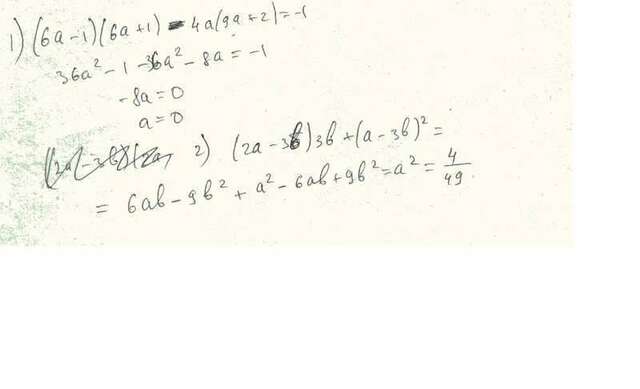 1) (6a-1)(6a+1) - 4a(9a+2)=-1
36a² - 1 - 36a² - 8a = -1
-8a = 0
a = 0
2) (2a - 3b)3b + (a - 3b)² =
= 6ab - 9b² + a² - 6ab + 9b² = a² = 4/49